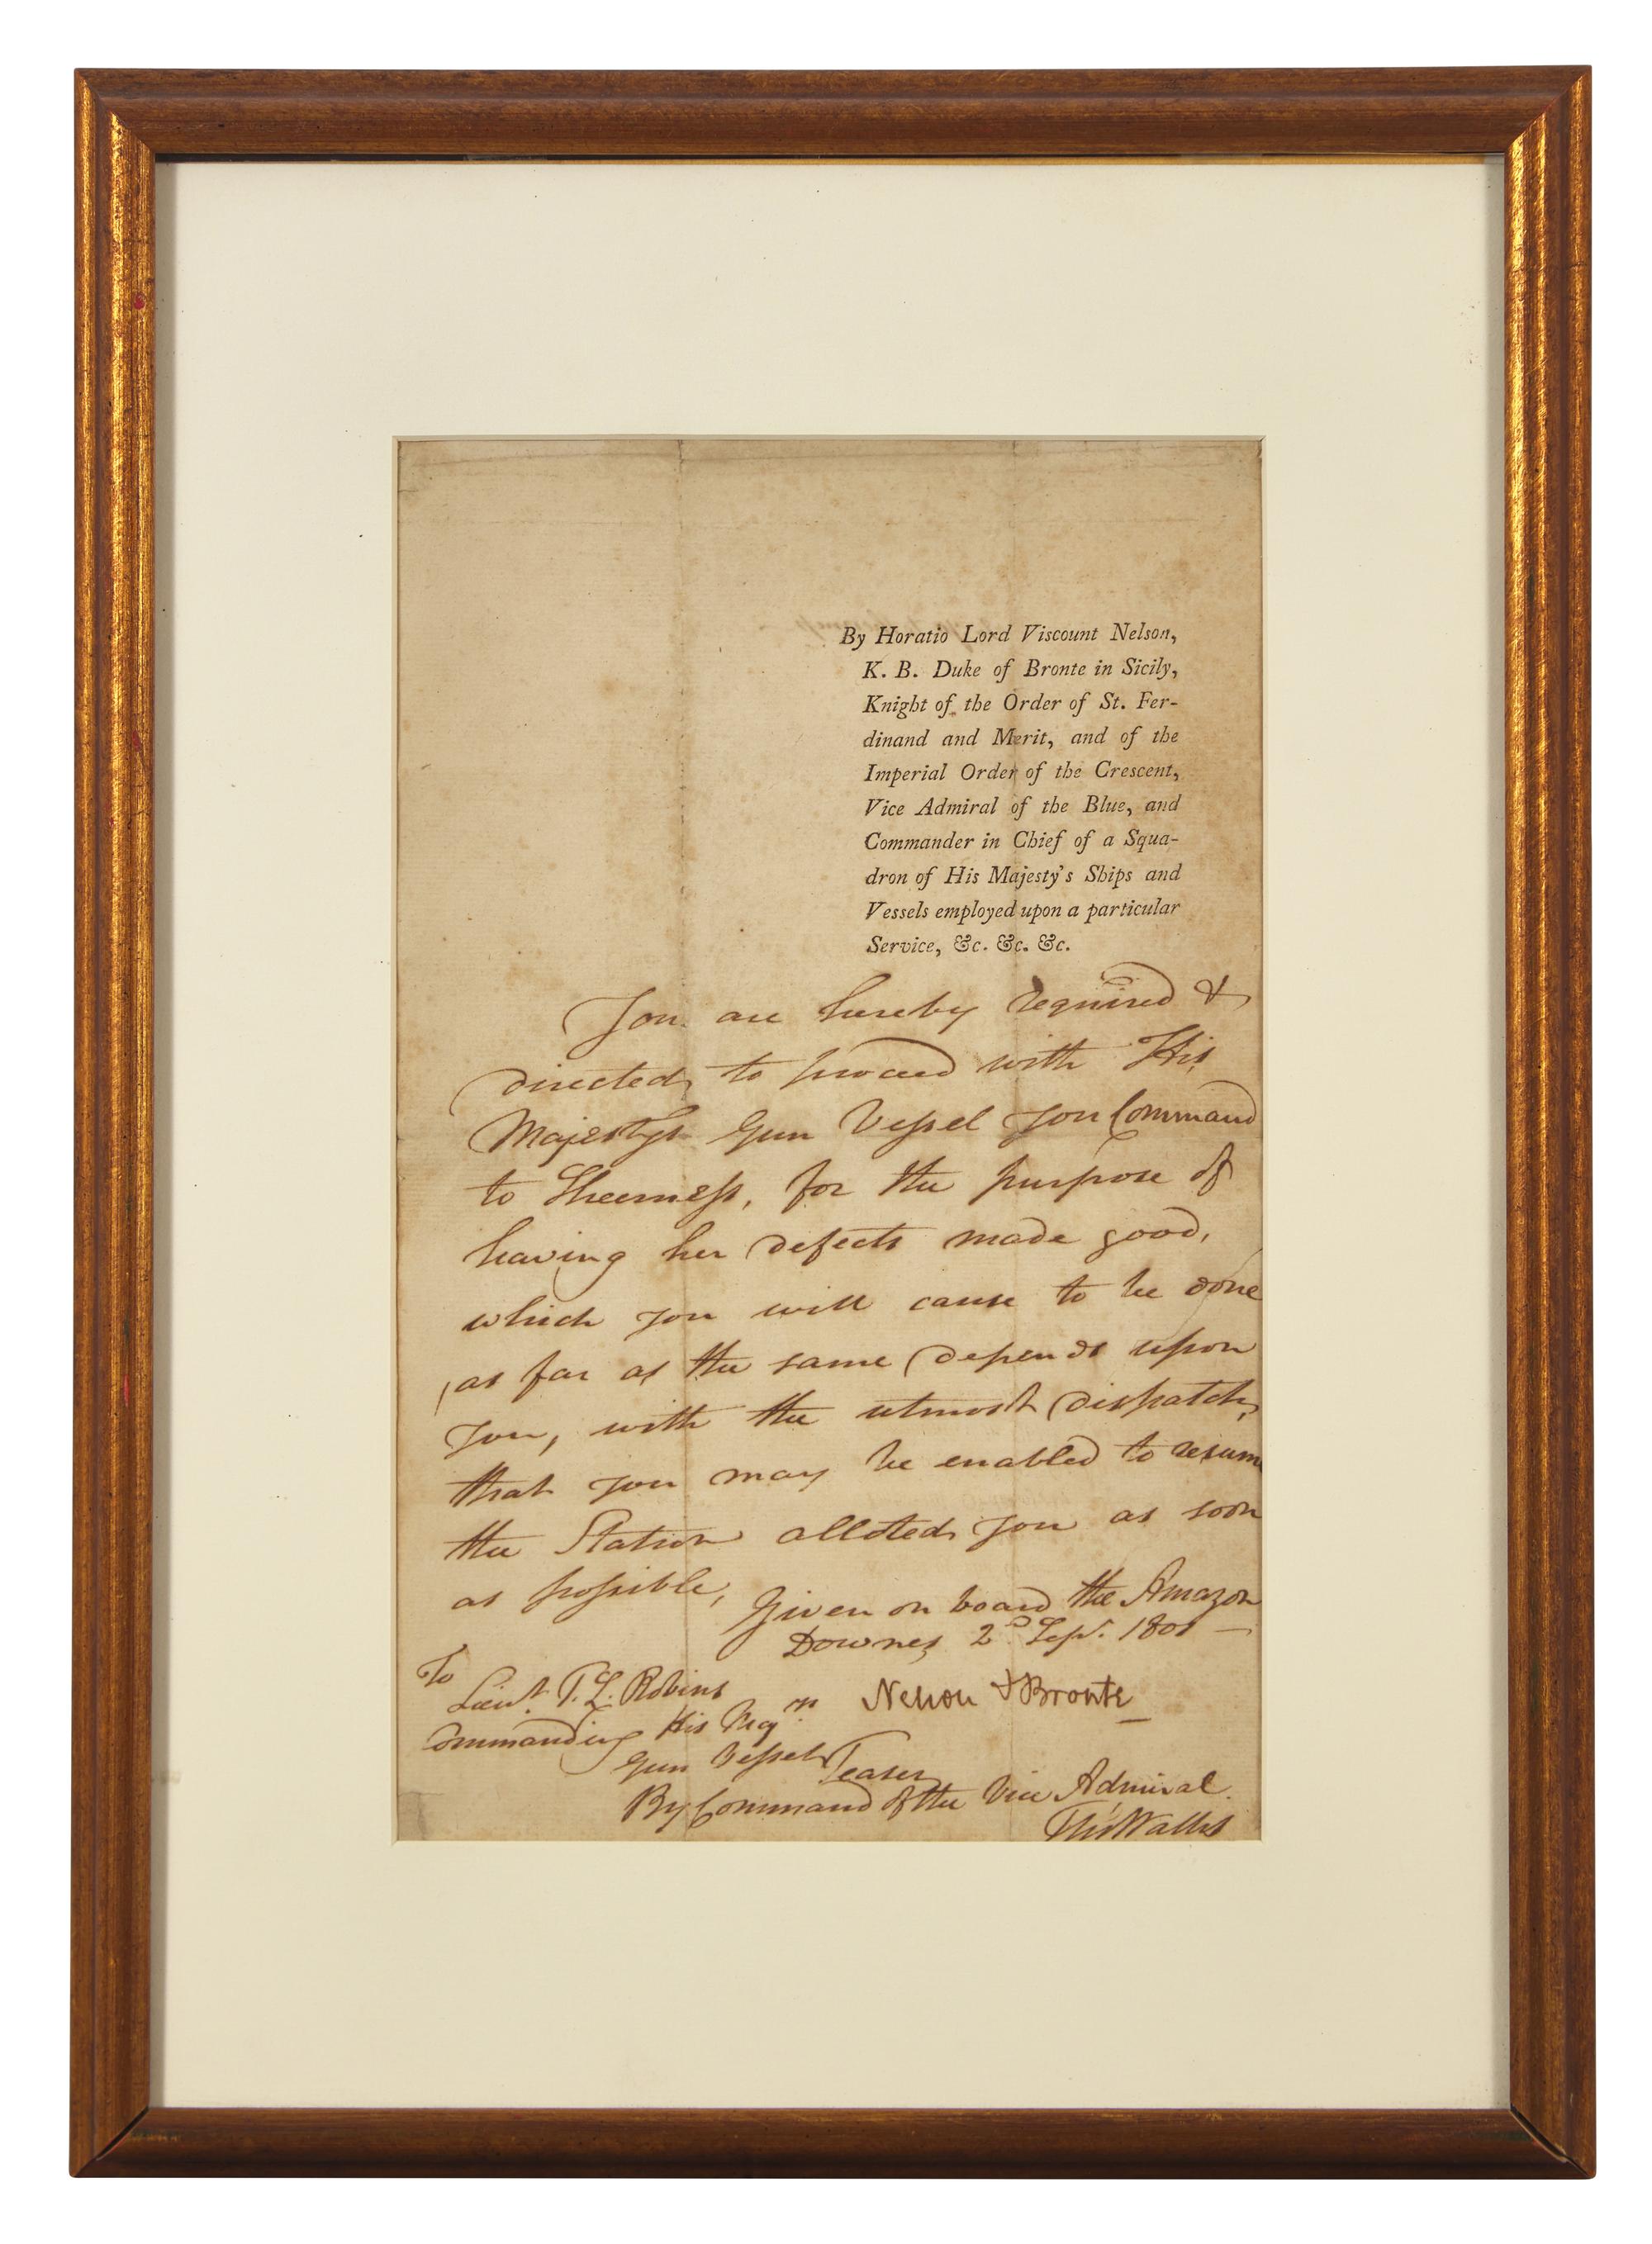 By Horatio Lord Viscount Nelson,
K. B. Duke of Bronte in Sicily,
Knight of the Order of St. Fer-
dinand and Merit, and of the
Imperial Order of the Crescent,
Vice Admiral of the Blue, and
Commander in Chief of a Squa-
dron of His Majesty's Ships and
Vessels employed upon a particular
Service, &c. &c. &c.
You are hereby required &
directed to proceed with His
Majesty's Gun Vessel you Command
to Sheerness, for the purpose of
having her defects made good,
which you will cause to be done
as far as the same depends upon
you, with the utmost dispatch,
that you may be enabled to resume
the Station alloted you as soon
as possible,
Given on board the Amazon
Downes 2d Sepr. 1801
To
Lieut. T. L. Robins
Nelson & Bronte
Commanding His Majys
Gun Vessel Teaser
By Command of the Vice Admiral
Thos Wallis